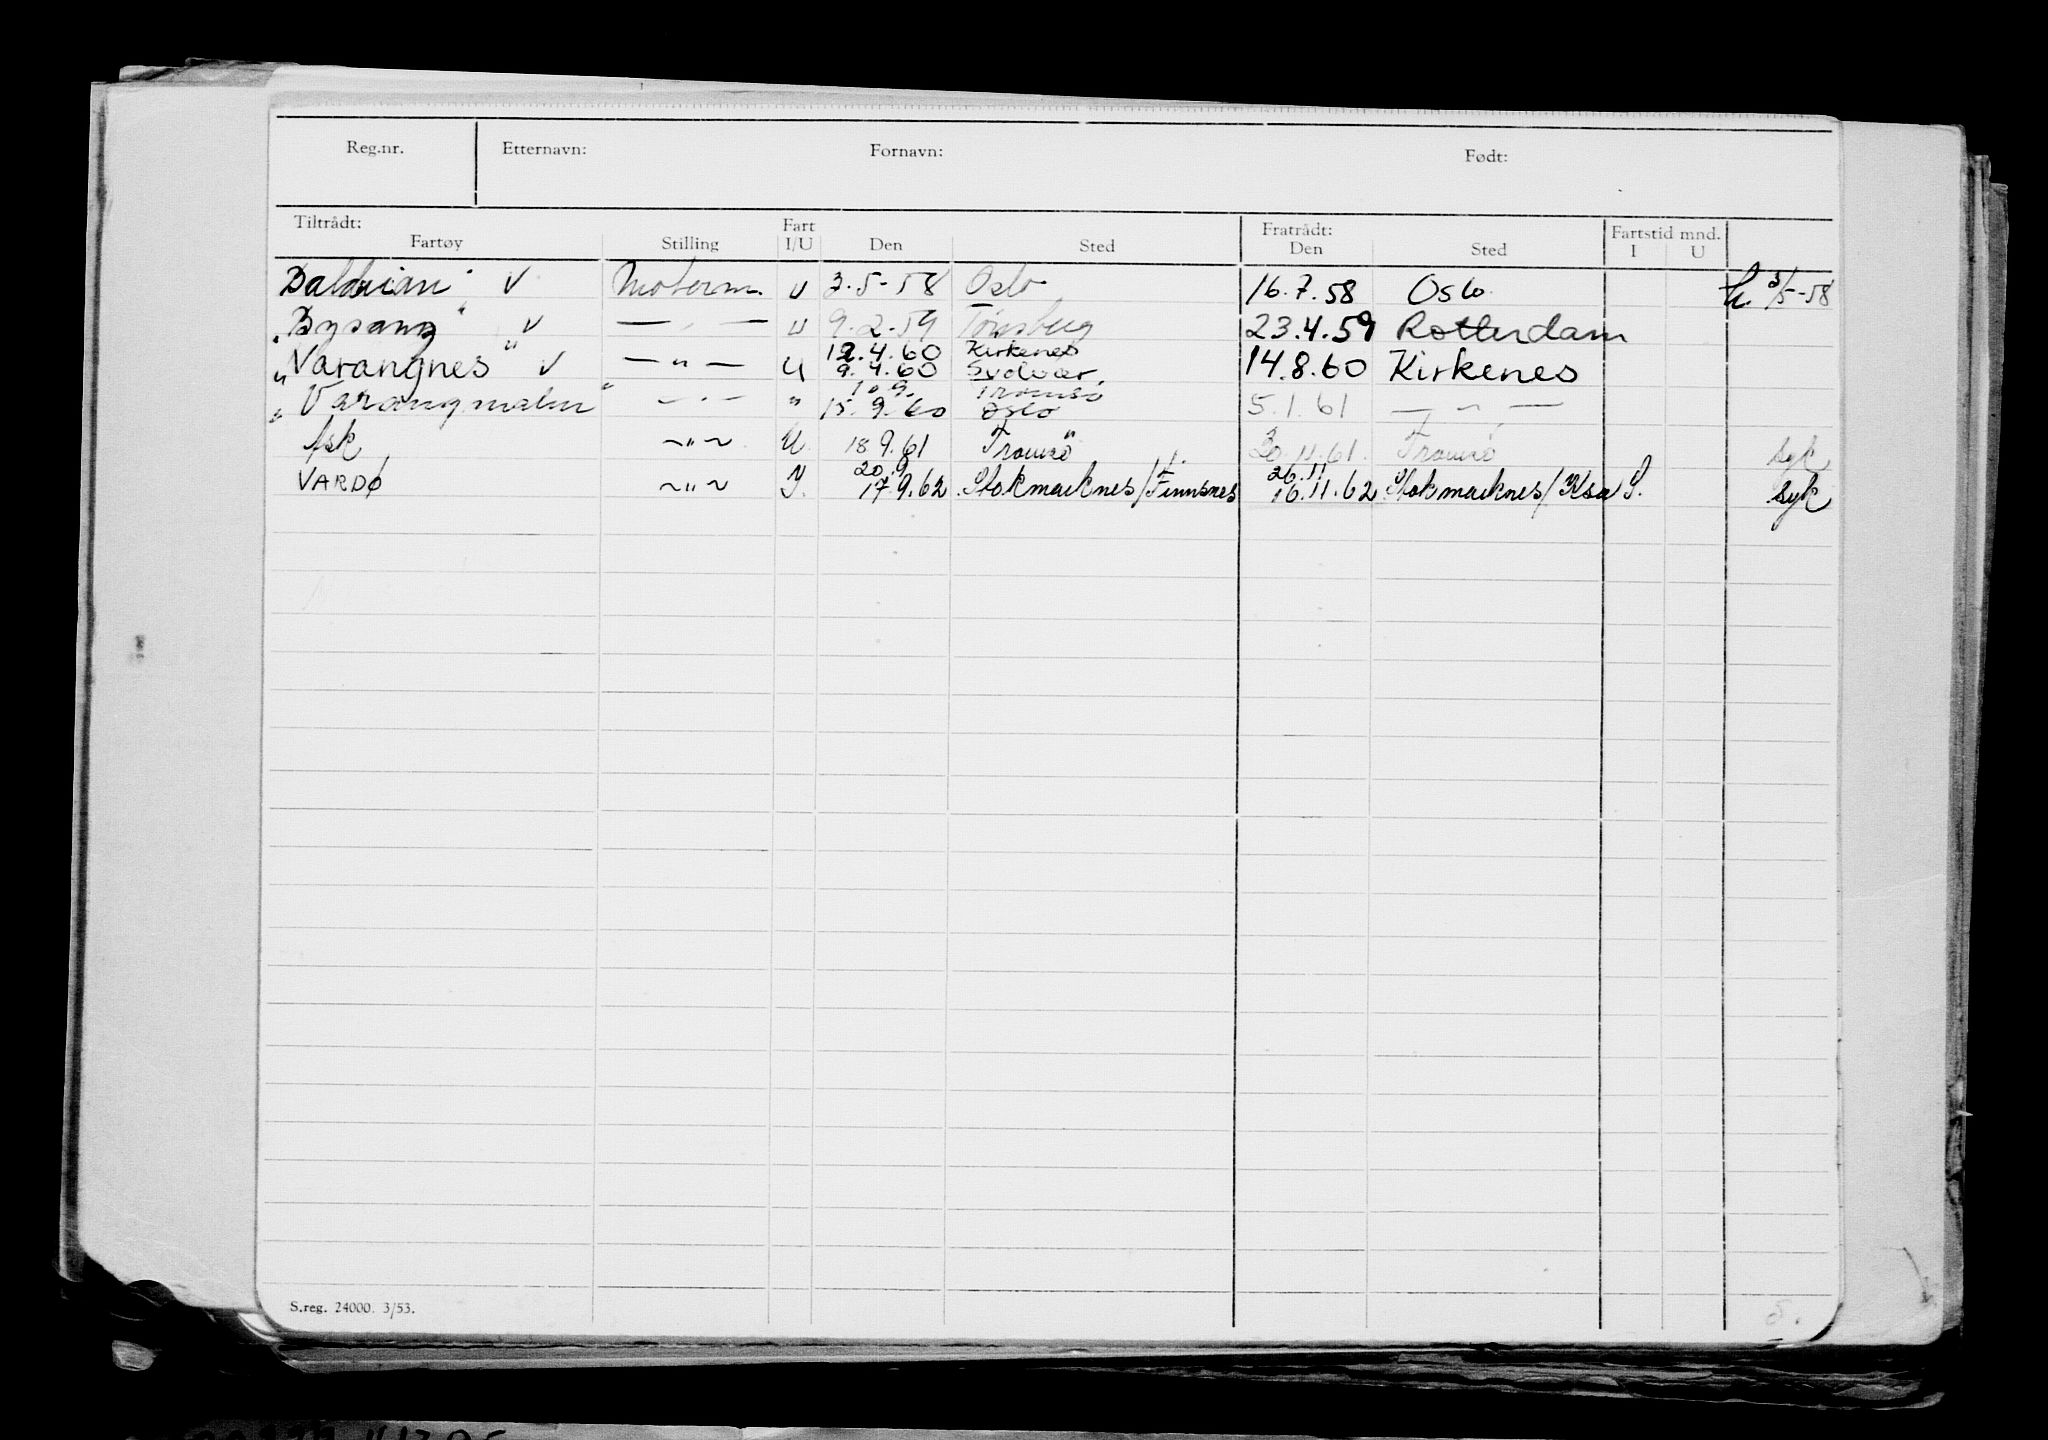 Reg.nr. Etternavn: Fornavn: Født:
Tiltrådt: Fart Fratrådt: Fartstid mnd.
Fartøy Stilling I/U Den Sted Den Sted I U
Baldrian" v Motorm. U 3.5-58 Oslo 16.7.58 Oslo 3/5-58
"Bysanz" v — " — U 9.2.59 Tønsberg 23.4.59 Rotterdam
12.4.60 Kirkenes
"Varangnes" v — " — U 9.4.60 Svolvær 14.8.60 Kirkenes
10.9. Tromsø
"Varangmalm" — " — " 15.9.60 Oslo 5.1.61 — " —
Ask ~ " ~ U 18.9.61 Tromsö 30.11.61. Tromsö syk
20.9 26.11
VARDØ ~ " ~ I. 17.9.62 Stokmarknes/Finnsnes 16.11.62 Stokmarknes/Ksa S. syk
S.reg. 24000. 3/53.
5.